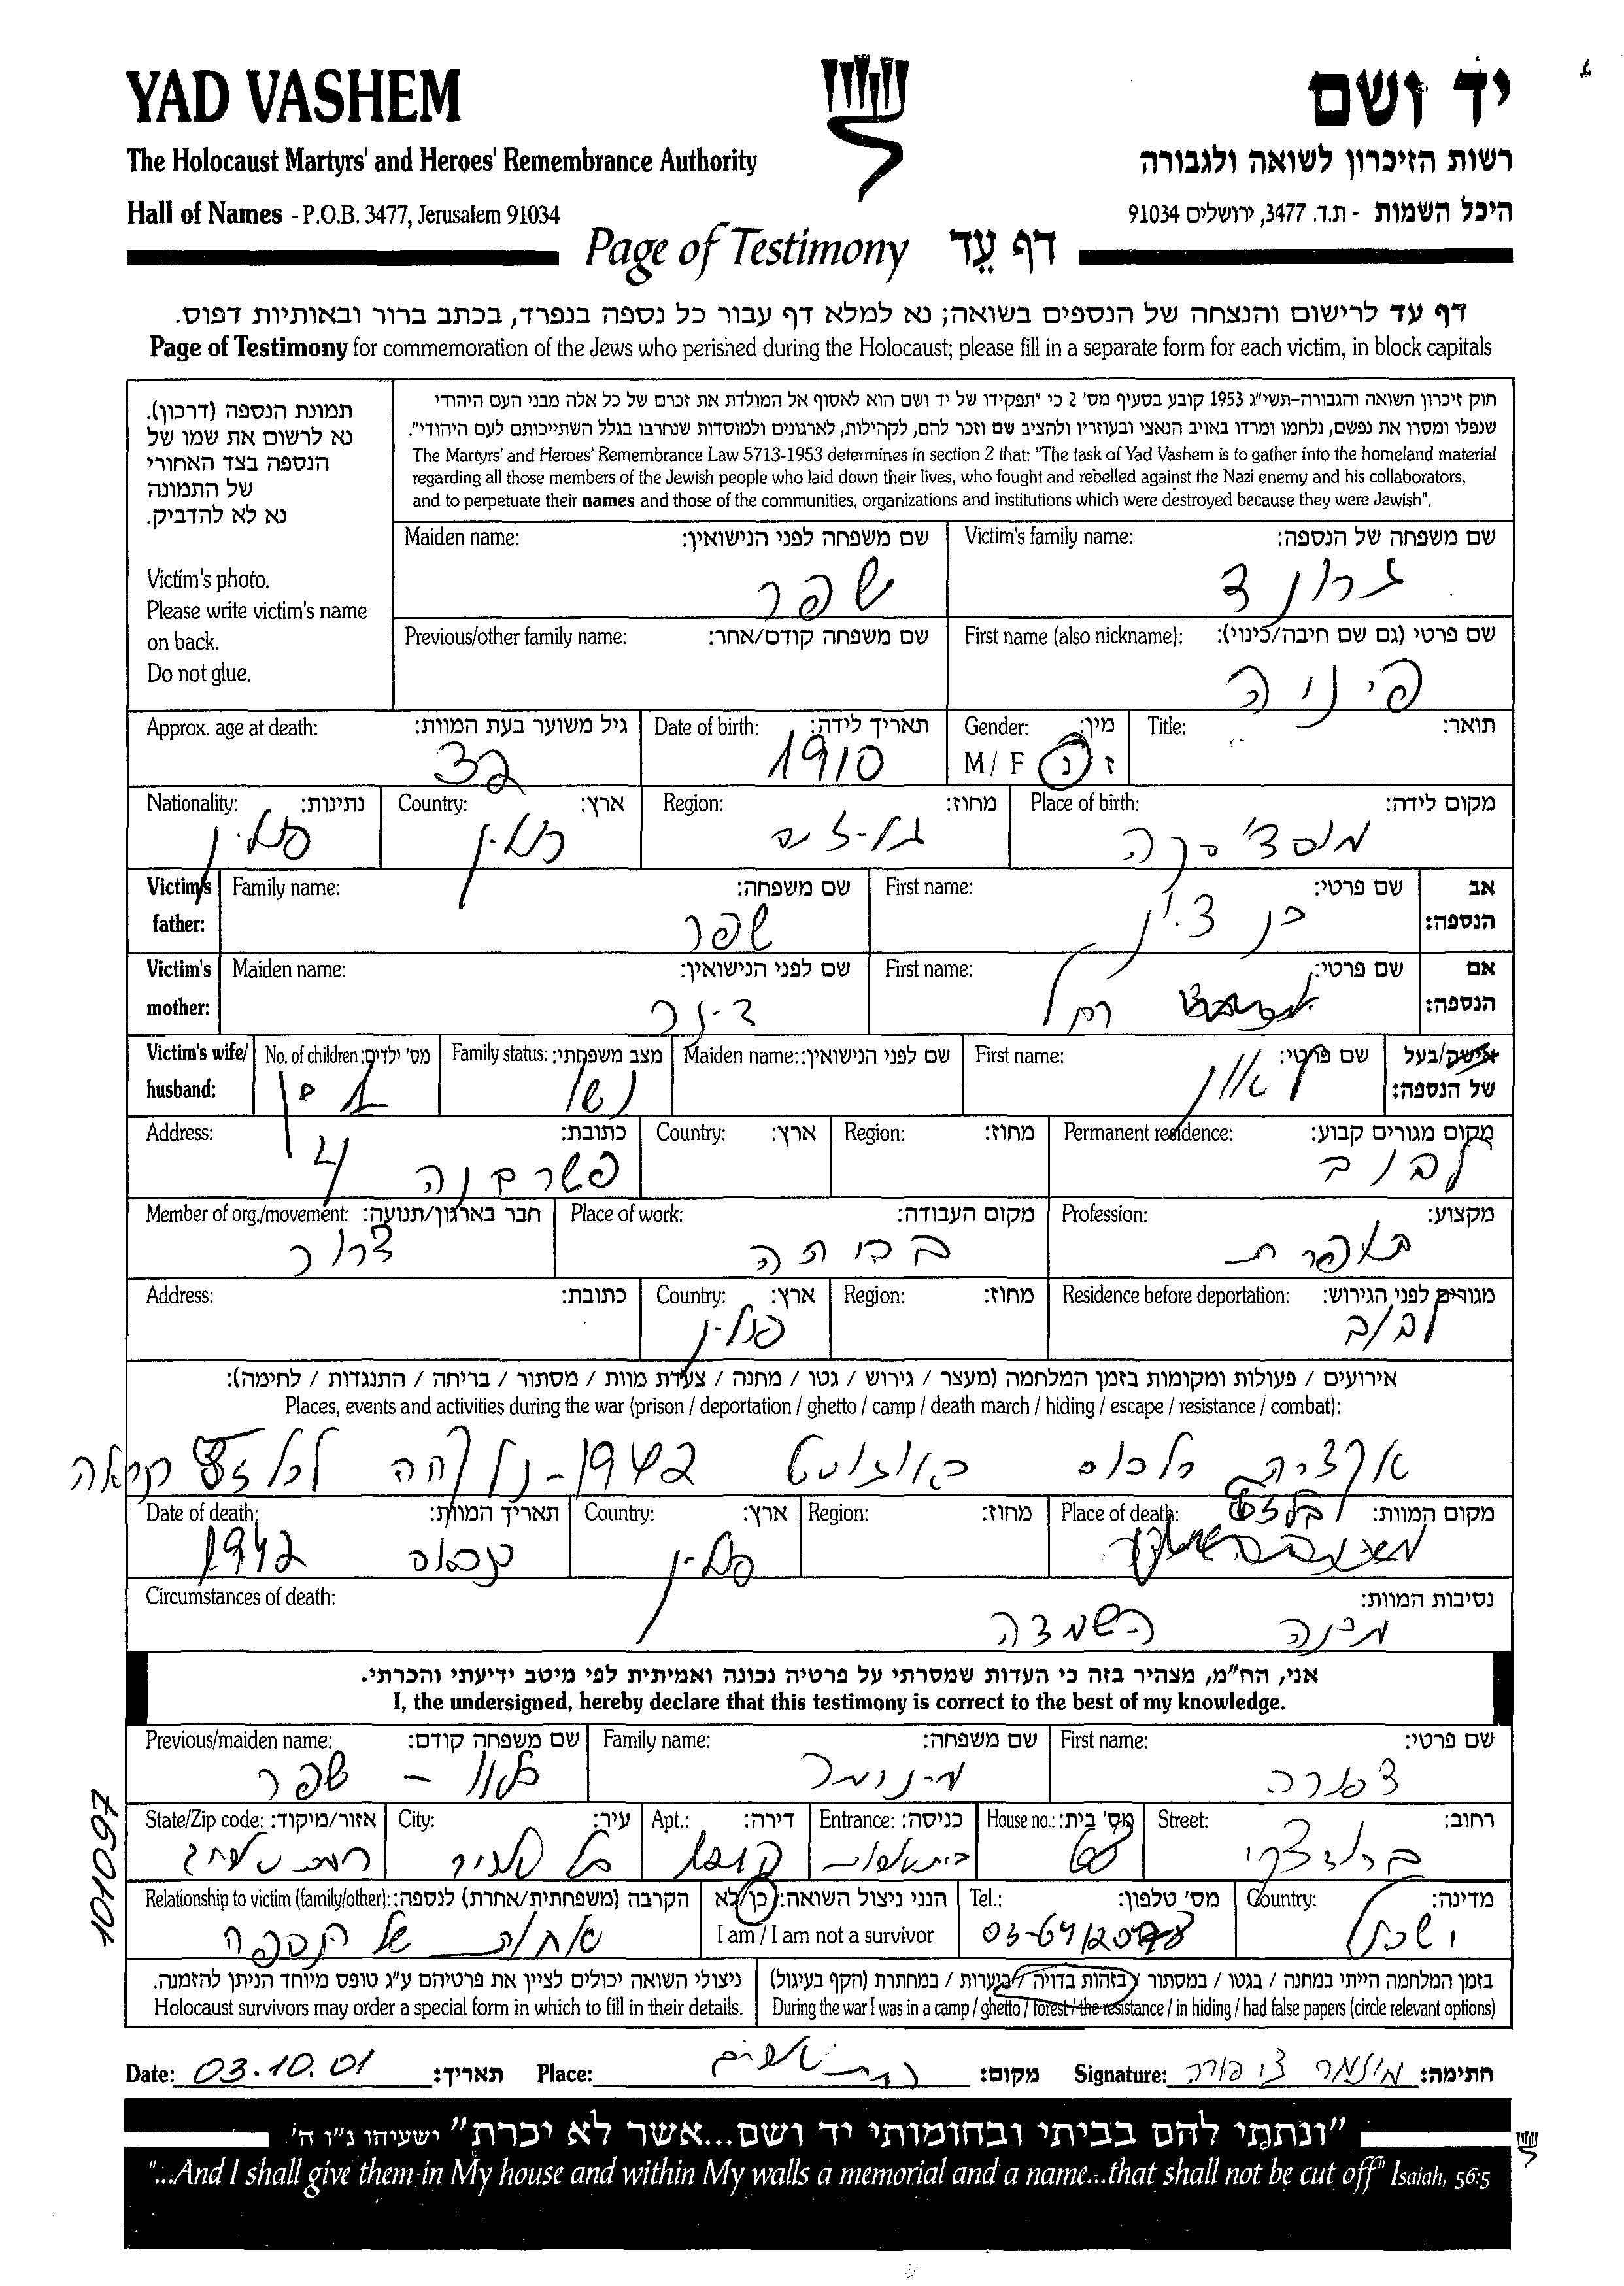 YAD VASHEM
יד ושם
The Holocaust Martyrs' and Heroes' Remembrance Authority
רשות הזיכרון לשואה ולגבורה
Hall of Names - P.O.B. 3477, Jerusalem 91034
היכל השמות - ת.ד. 3477, ירושלים 91034
Page of Testimony דף עֵד
דף עד לרישום והנצחה של הנספים בשואה; נא למלא דף עבור כל נספה בנפרד, בכתב ברור ובאותיות דפוס.
Page of Testimony for commemoration of the Jews who perished during the Holocaust; please fill in a separate form for each victim, in block capitals
תמונת הנספה (דרכון).
נא לרשום את שמו של
הנספה בצד האחורי
של התמונה
נא לא להדביק.
Victim's photo.
Please write victim's name
on back.
Do not glue.
חוק זיכרון השואה והגבורה-תשי"ג 1953 קובע בסעיף מס' 2 כי "תפקידו של יד ושם הוא לאסוף אל המולדת את זכרם של כל אלה מבני העם היהודי
שנפלו ומסרו את נפשם, נלחמו ומרדו באויב הנאצי ובעוזריו ולהציב שם וזכר להם, לקהילות, לארגונים ולמוסדות שנחרבו בגלל השתייכותם לעם היהודי".
The Martyrs' and Heroes' Remembrance Law 5713-1953 determines in section 2 that: "The task of Yad Vashem is to gather into the homeland material
regarding all those members of the Jewish people who laid down their lives, who fought and rebelled against the Nazi enemy and his collaborators,
and to perpetuate their names and those of the communities, organizations and institutions which were destroyed because they were Jewish".
Victim's family name: שם משפחה של הנספה:
גרונד
Maiden name: שם משפחה לפני הנישואין:
שפר
First name (also nickname): שם פרטי (גם שם חיבה/כינוי):
פיניה
Previous/other family name: שם משפחה קודם/אחר:
Title: תואר:
Gender: מין:
M / F ז נ
Date of birth: תאריך לידה:
1910
Approx. age at death: גיל משוער בעת המוות:
32
Place of birth: מקום לידה:
Region: מחוז:
Country: ארץ:
פולין
Nationality: נתינות:
פולין
Victim's father: אב הנספה:
First name: שם פרטי:
בן ציון
Family name: שם משפחה:
שפר
Victim's mother: אם הנספה:
First name: שם פרטי:
רחל
Maiden name: שם לפני הנישואין:
Victim's wife/ husband: אישה/בעל של הנספה:
First name: שם פרטי:
Maiden name: שם לפני הנישואין:
Family status: מצב משפחתי:
נשוי
No. of children: מס' ילדים:
Permanent residence: מקום מגורים קבוע:
לבוב
Region: מחוז:
Country: ארץ:
Address: כתובת:
4
Profession: מקצוע:
תופרת
Place of work: מקום העבודה:
Member of org./movement: חבר בארגון/תנועה:
דרור
Residence before deportation: מגורים לפני הגירוש:
לבוב
Region: מחוז:
Country: ארץ:
פולין
Address: כתובת:
אירועים / פעולות ומקומות בזמן המלחמה (מעצר / גירוש / גטו / מחנה / צעדת מוות / מסתור / בריחה / התנגדות / לחימה):
Places, events and activities during the war (prison / deportation / ghetto / camp / death march / hiding / escape / resistance / combat):
אקציה באוגוסט 1942 - נלקחה לבלזץ
Place of death: מקום המוות:
בלזץ
Region: מחוז:
Country: ארץ:
פולין
Date of death: תאריך המוות:
1942
Circumstances of death: נסיבות המוות:
מחנה השמדה
אני, הח"מ, מצהיר בזה כי העדות שמסרתי על פרטיה נכונה ואמיתית לפי מיטב ידיעתי והכרתי.
I, the undersigned, hereby declare that this testimony is correct to the best of my knowledge.
First name: שם פרטי:
צפורה
Family name: שם משפחה:
Previous/maiden name: שם משפחה קודם:
שפר
Street: רחוב:
House no.: מס' בית:
Entrance: כניסה:
Apt.: דירה:
City: עיר:
State/Zip code: אזור/מיקוד:
Country: מדינה:
ישראל
Tel.: מס' טלפון:
הנני ניצול השואה: כן/לא
I am / I am not a survivor
Relationship to victim (family/other): הקרבה (משפחתית/אחרת) לנספה:
אחות של הנספה
בזמן המלחמה הייתי במחנה / בגטו / במסתור / בזהות בדויה / ביערות / במחתרת (הקף בעיגול)
During the war I was in a camp / ghetto / forest / the resistance / in hiding / had false papers (circle relevant options)
ניצולי השואה יכולים לציין את פרטיהם ע"ג טופס מיוחד הניתן להזמנה.
Holocaust survivors may order a special form in which to fill in their details.
101097
Date: 03.10.01 תאריך:
Place: מקום:
Signature: חתימה:
"ונתתי להם בביתי ובחומותי יד ושם...אשר לא יכרת" ישעיהו נ"ו ה'
"...And I shall give them in My house and within My walls a memorial and a name...that shall not be cut off" Isaiah, 56:5